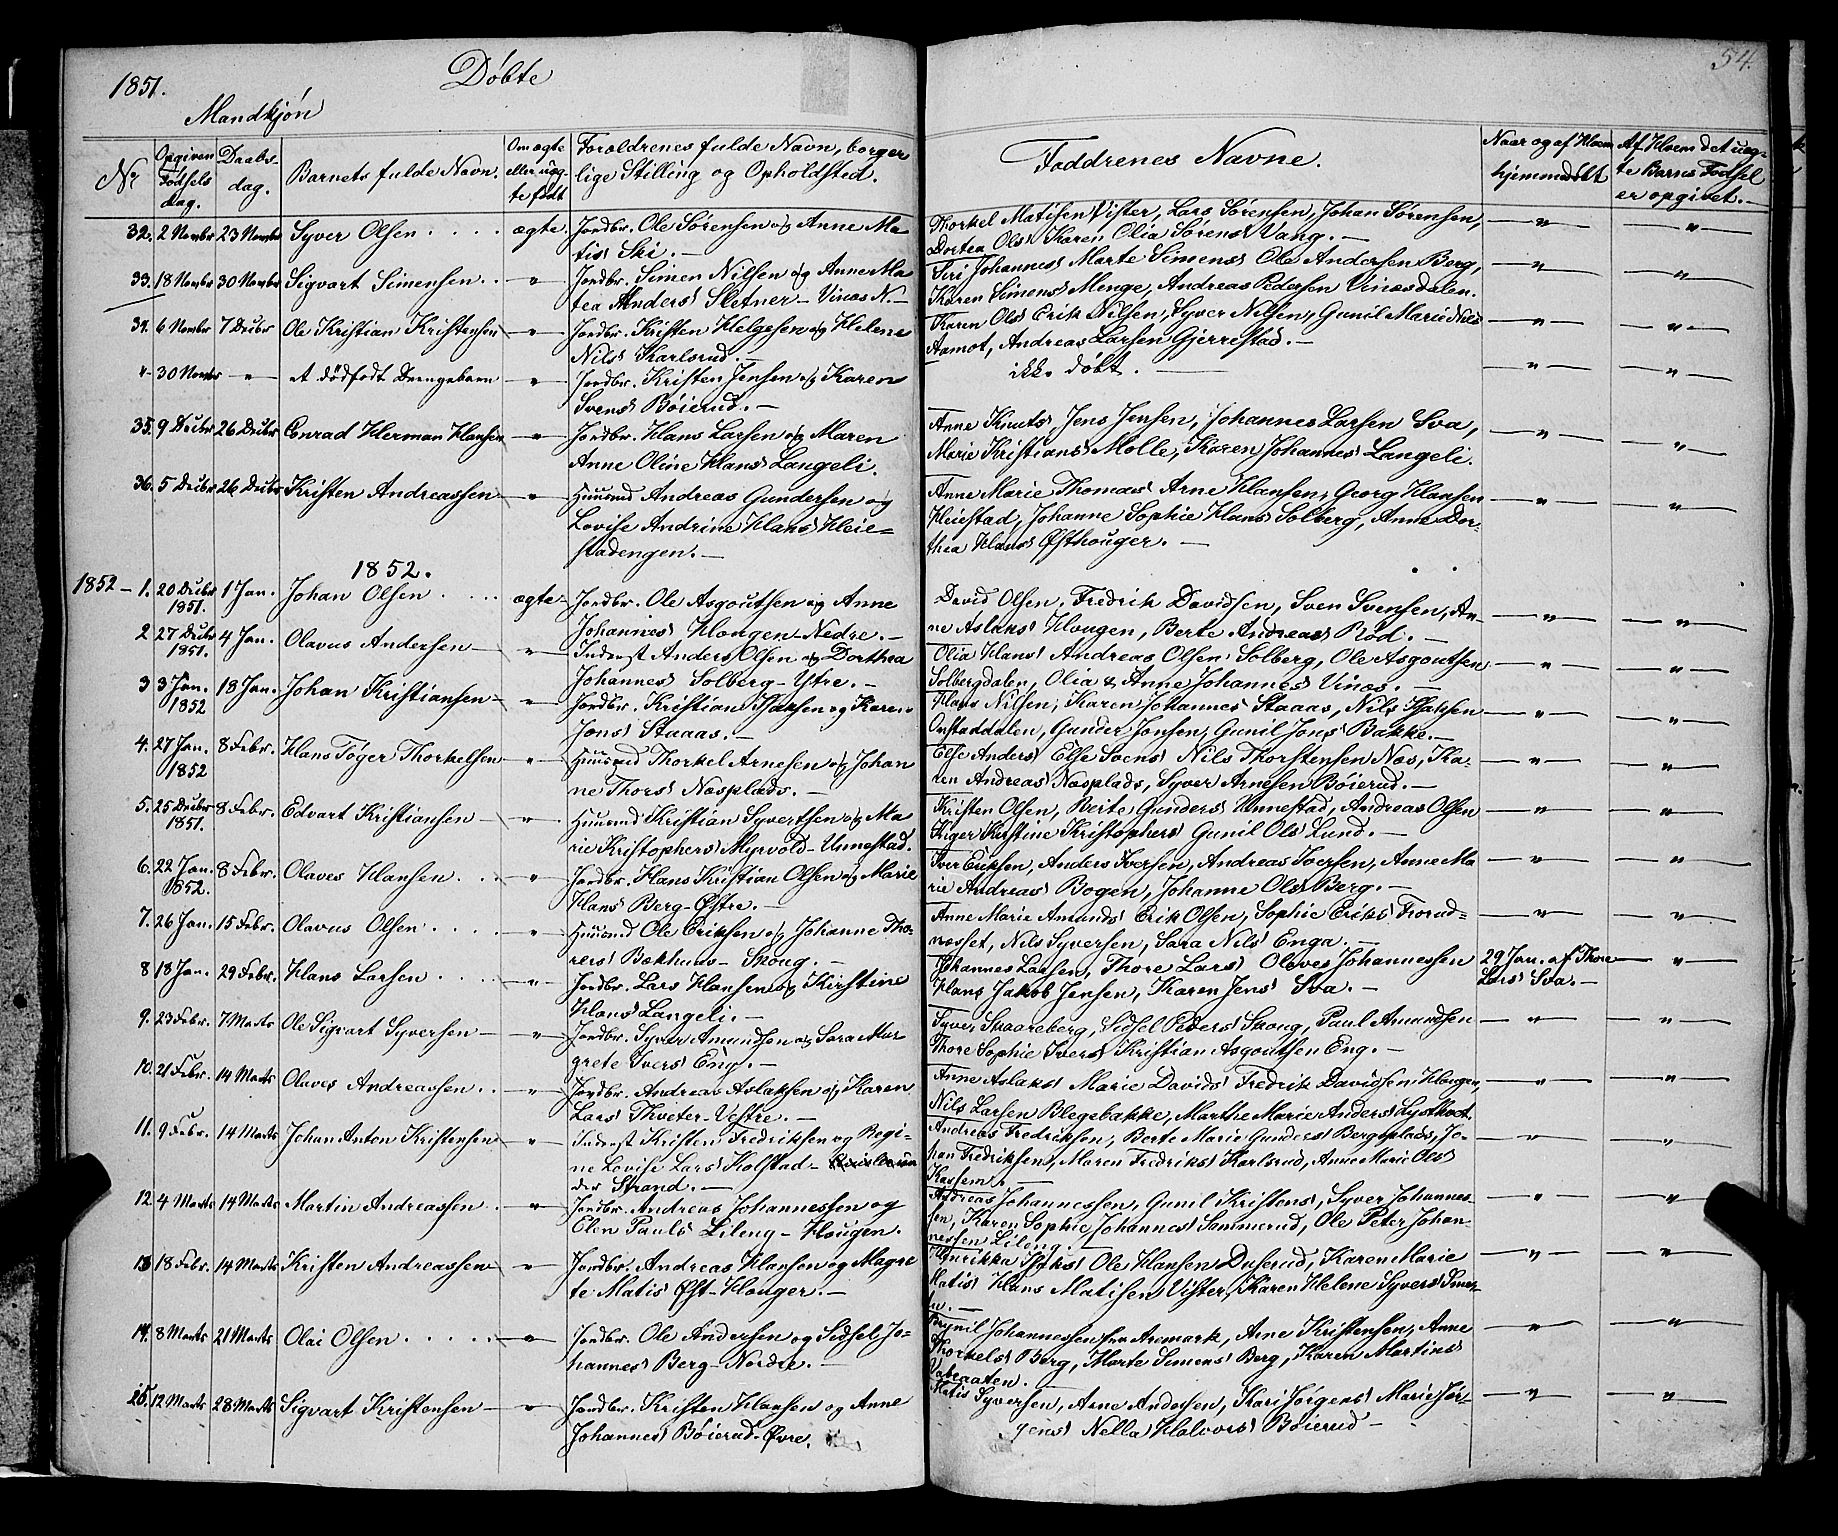 1851.
Døbte
54.
Mandkjøn
Nr
Opgiven Fødsels dag.
Daabs- dag.
Barnets fulde Navn.
Om ægte eller uæg- te født
Forældrenes fulde Navn, borger lige Stilling og Opholdsted.
Faddrenes Navne.
Naar og af Hvem hjemmedøbt
Af Hvem det uæg- te Barns Fødsel er opgivet.
32. 2 Novbr 23 Novbr Syver Olsen . . . . ægte. Jordbr. Ole Sørensen og Anne Ma-
tis Ski. —
Thorkel Matisen Vister, Lars Sørensen, Johan Sørensen, — " — — " —
Dortea Ols Karen Olia Sørens Vang. —
33. 18 Novbr 30 Novbr Sigvart Simensen . . — " — Jordbr. Simen Nilsen og Anne Ma
tea Anders Sletner - Vinæs N. —
Siri Johannes Marte Simens Ole Andersen Berg, — " — — " —
Karen Simens Menge, Andreas Pedersen Vinæsdalen.
34. 6 Novbr 7 Decbr Ole Kristian Kristensen — " — Jordbr. Kristen Helgesen og Helene
Nils Karlsrud. —
Karen Ols Erik Nilsen, Syver Nilsen, Gunil Marie Nils — " — — " —
Aamot, Andreas Larsen Gjerrestad. —
" 30 Novbr — " — et dødfødt Drengebarn — " — Jordbr. Kristen Jensen og Karen
Svens Bøierud. —
ikke døbt. — — " — — " —
35. 9 Decbr 26 Decbr Conrad Herman Hansen — " — Jordbr. Hans Larsen og Maren
Anne Oline Hans Langeli.
Anne Knuts, Jens Jensen, Johannes Larsen Sva, — " — — " —
Marie Kristians Molle, Karen Johannes Langeli.
36. 5 Decbr 26 Decbr Kristen Andreassen — " — Huusmd Andreas Gundersen og
Lovise Andrine Hans Heie-
stadengen. —
Anne Marie Thomas Arne Hansen, Georg Hansen — " — — " —
Heiestad, Johanne Sophie Hans Solberg, Anne Dor-
thea Hans Østhouger. —
1852.
1852 - 1. 20 Decbr 1851. 1 Jan. Johan Olsen . . . . ægte - Jordbr. Ole Asgoutsen og Anne
Johannes Hougen - Nedre. —
David Olsen, Fredrik Davidsen, Sven Svensen, An- — " — — " —
ne Aslaks Hougen, Berte Andreas Rød. —
2 27 Decbr 1851. 4 Jan. Olavus Andersen — — " — Inderst Anders Olsen og Dorthea
Johannes Solberg - Ytre. —
Olia Hans Andreas Olsen Solberg, Ole Asgoutsen — " — — " —
Solbergdalen, Olia & Anne Johannes Vinæs. —
3 3 Jan. 1852 18 Jan. Johan Kristiansen — — " — Jordbr. Kristian Isaksen og Karen
Jons Staaas. —
Hans Nilsen, Karen Johannes Staaas, Nils Isaksen — " — — " —
Onstaddalen, Gunder Jonsen, Gunil Jons Bakke. —
4. 27 Jan. 1852 8 Febr. Hans Tøger Thorkelsen — " — Huusmd Thorkel Arnesen og Johan
ne Thors Næsplads. —
Else Anders Else Svens Nils Thorstensen Næs, Ka- — " — — " —
ren Andreas Næsplads, Syver Arnesen Bøierud. —
5. 25 Decbr 1851. 8 Febr. Edvart Kristiansen — — " — Huusmd Kristian Syvertsen og Ma
rie Kristophers Myrvold - Unnestad.
Kristen Olsen, Berte Gunders Unnestad, Andreas Olsen — " — — " —
Kirstine Kristophers Gunil Ols Lund. —
6. 22 Jan. 1852. 8 Febr. Olaves Hansen . . — " — Jordbr. Hans Kristian Olsen og Marie
Hans Berg - Østre. —
Iver Eriksen, Anders Iversen, Andreas Iversen, Anne Ma — " — — " —
rie Andreas Bogen, Johanne Ols Berg. —
7. 26 Jan. 15 Febr. Olavus Olsen . . . . — " — Huusmd Ole Eriksen og Johanne Tho-
rers Bækhuus - Skoug. —
Anne Marie Amunds Erik Olsen, Sophie Eriks Torud- — " — — " —
næsset, Nils Syversen, Sara Nils Enga. —
8 18 Jan. 29 Febr. Hans Larsen . . . . — " — Jordbr. Lars Hansen og Kirstine
Hans Langeli. —
Johannes Larsen, Thore Lars Olaves Johannessen 29 Jan. af Thore — " —
Hans Jakob Jensen, Karen Jens Sva. — Lars Sva. —
9. 23 Febr. 7 Marts Ole Sigvart Syversen — — " — Jordbr. Syver Amundsen og Sara Mar
grete Ivers Eng. —
Syver Skaareberg, Sidsel Peders Skoug, Paul Amundsen — " — — " —
Thore Sophie Ivers Kristian Asgoutsen Eng. —
10. 21 Febr. 14 Marts Olaves Andreassen . . — " — Jordbr. Andreas Aslaksen og Karen
Lars Thveter - Vestre. —
Anne Aslaks Marie Davids Fredrik Davidsen Hougen, — " — — " —
Nils Larsen Blegebakke, Marthe Marie Anders
11. 9 Febr. 14 Marts Johan Anton Kristensen — " — Inderst Kristen Fredriksen og Regi-
ne Lovise Lars Kolstad -
der Strand. —
Andreas Fredriksen, Berte Marie Gunders Bergsplads, Jo- — " — — " —
han Fredriksen, Maren Fredriks Karlsrud, Anne Marie Ols
12. 4 Marts 14 Marts Martin Andreassen . . — " — Jordbr. Andreas Johannessen og
Elen Pauls Lileng - Hougen.
Andreas Johannessen, Gunil Kristens, Syver Johannes- — " — — " —
sen, Karen Sophie Johannes Sammerud, Ole Peter Johan-
nessen Lileng. —
13 18 Febr. 14 Marts Kristen Andreassen — " — Jordbr. Andreas Hansen og Magre
te Matis Øst-Houger. —
Henrikka Isaks Ole Hansen Duserud, Karen Marie — " — — " —
Matis Hans Matisen Vister, Karen Helene Syvers
14. 8 Marts 21 Marts Olai Olsen . . . . . — " — Jordbr. Ole Andersen og Sidsel Jo-
hannes Berg - Nordre. —
Brynil Johannessen fra Aremark, Arne Kristensen, Anne — " — — " —
Thorkels Berg, Marte Simens Berg, Karen Martins
15. 12 Marts 28 Marts Sigvart Kristensen — — " — Jordbr. Kristen Hansen og Anne
Johannes Bøierud - Øvre.
Matis Syversen, Arne Andersen, Kari Jørgens Marie Jør- — " — — " —
gens Nella Halvors Bøierud —